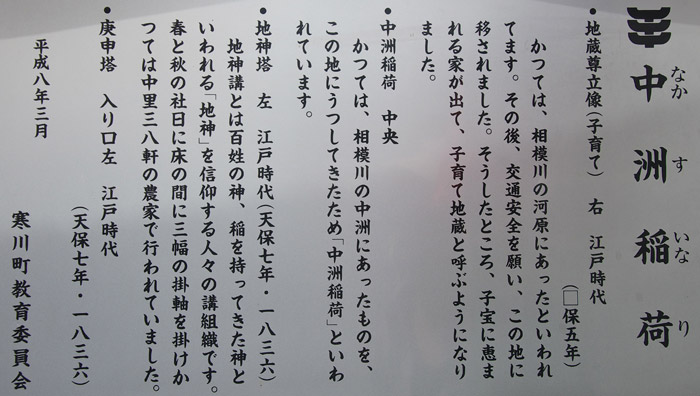 中洲稲荷
なか す いな り
・地蔵尊立像(子育て) 右 江戸時代
(□保五年)
かつては、相模川の河原にあったといわれ
てます。その後、交通安全を願い、この地に
移されました。そうしたところ、子宝に恵ま
れる家が出て、子育て地蔵と呼ぶようになり
ました。
・中洲稲荷 中央
かつては、相模川の中洲にあったものを、
この地にうつしてきたため「中洲稲荷」といわ
れています。
・地神塔 左 江戸時代(天保七年・一八三六)
地神講とは百姓の神、稲を持ってきた神と
いわれる「地神」を信仰する人々の講組織です。
春と秋の社日に床の間に三幅の掛軸を掛けか
つては中里三八軒の農家で行われていました。
・庚申塔 入り口左 江戸時代
(天保七年・一八三六)
平成八年三月
寒川町教育委員会